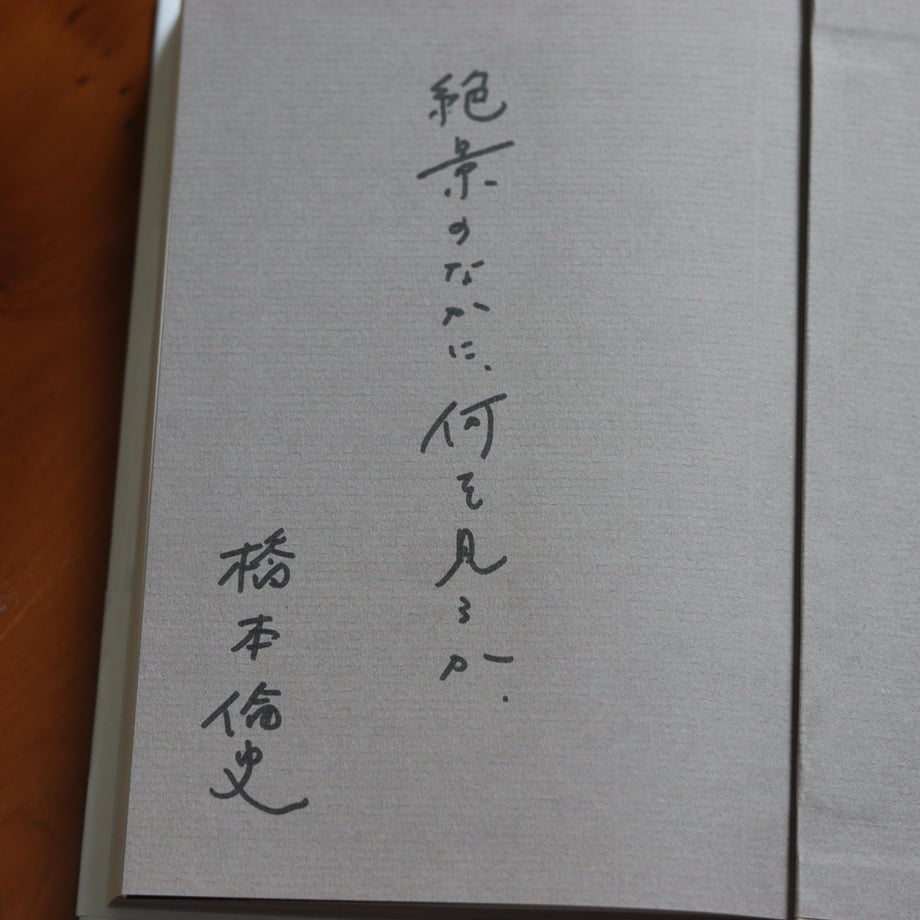 絶景のなかに、何を見るか.
橋本倫史